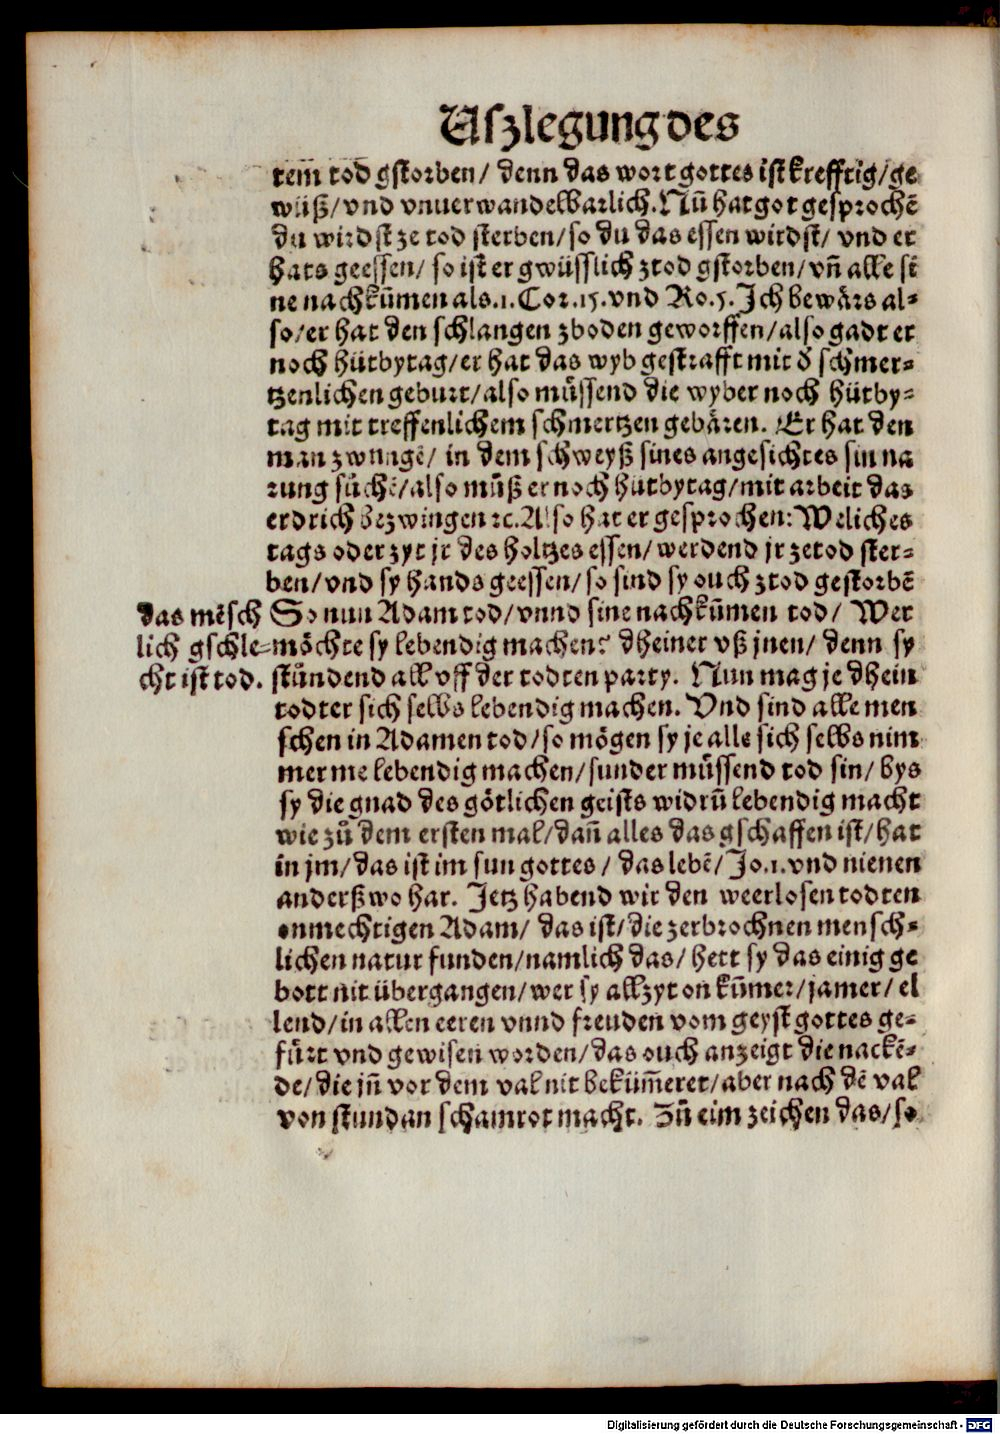 Uſzlegung des
tem̃ tod gſtorben/ denn das wort gottes iſt krefftig/ge
wüß/vnd vnuerwandelbarlich. Nũ hat got geſprochẽ
du wirdſt ze tod ſterben/ſo du das eſſen wirdſt/ vnd er
hats geeſſen/ ſo iſt er gwüſſlich ztod gſtorben/vñ alle ſi
ne nachkũmen als.1. Cor.15.vnd Ro.5. Ich bewärs al⸗
ſo/er hat den ſchlangen zboden geworffen/alſo gadt er
noch hütbytag/er hat das wyb geſtrafft mit d̕ ſchmer⸗
tzenlichen geburt/alſo müſſend die wyber noch hütby⸗
tag mit treffenlichem ſchmertzen gebären. Er hat den
man zwungẽ/ in dem ſchweyß ſines angeſichtes ſin na
rung ſůchẽ/alſo můß er noch hütbytag/mit arbeit das
erdrich bezwingen ⁊c. Alſo hat er geſprochen: Weliches
tags oder zyt jr des holtzes eſſen/ werdend jr zetod ſter⸗
ben/vnd ſy hands geeſſen/ſo ſind ſy ouch ztod geſtorbẽ
das mẽſch
lich gſchle⸗
cht iſt tod.
So nun Adam tod/vnnd ſine nachkũmen tod/ Wer
möchte ſy lebendig machen? dheiner vß jnen/ denn ſy
ſtůndend all vff der todten party. Nun mag je dhein
todter ſich ſelbs lebendig machen. Vnd ſind alle men
ſchen in Adamen tod/ſo mögen ſy je alle ſich ſelbs nim
mer me lebendig machen/ſunder müſſend tod ſin/ bys
ſy die gnad des götlichen geiſts widrũ lebendig macht
wie zů dem erſten mal/dañ alles das gſchaffen iſt/hat
in jm/das iſt im ſun gottes/ das lebẽ/Jo.1.vnd nienen
anderßwo har. Jetz habend wir den weerloſen todten
onmechtigen Adam/ das iſt/die zerbrochnen menſch⸗
lichen natur funden/namlich das/ hett ſy das einig ge
bott nit übergangen/wer ſy allzyt on kũmer/jamer/ el
lend/in allen eeren vnnd freuden vom geyſt gottes ge⸗
fürt vnd gewiſen worden/das ouch anzeigt die nackẽ⸗
de/die jñ vor dem val nit beküm̃eret/aber nach dẽ val
von ſtundan ſchamrot macht. Zů eim zeichen das/ſo
Digitalisierung gefördert durch die Deutsche Forschungsgemeinschaft - DFG